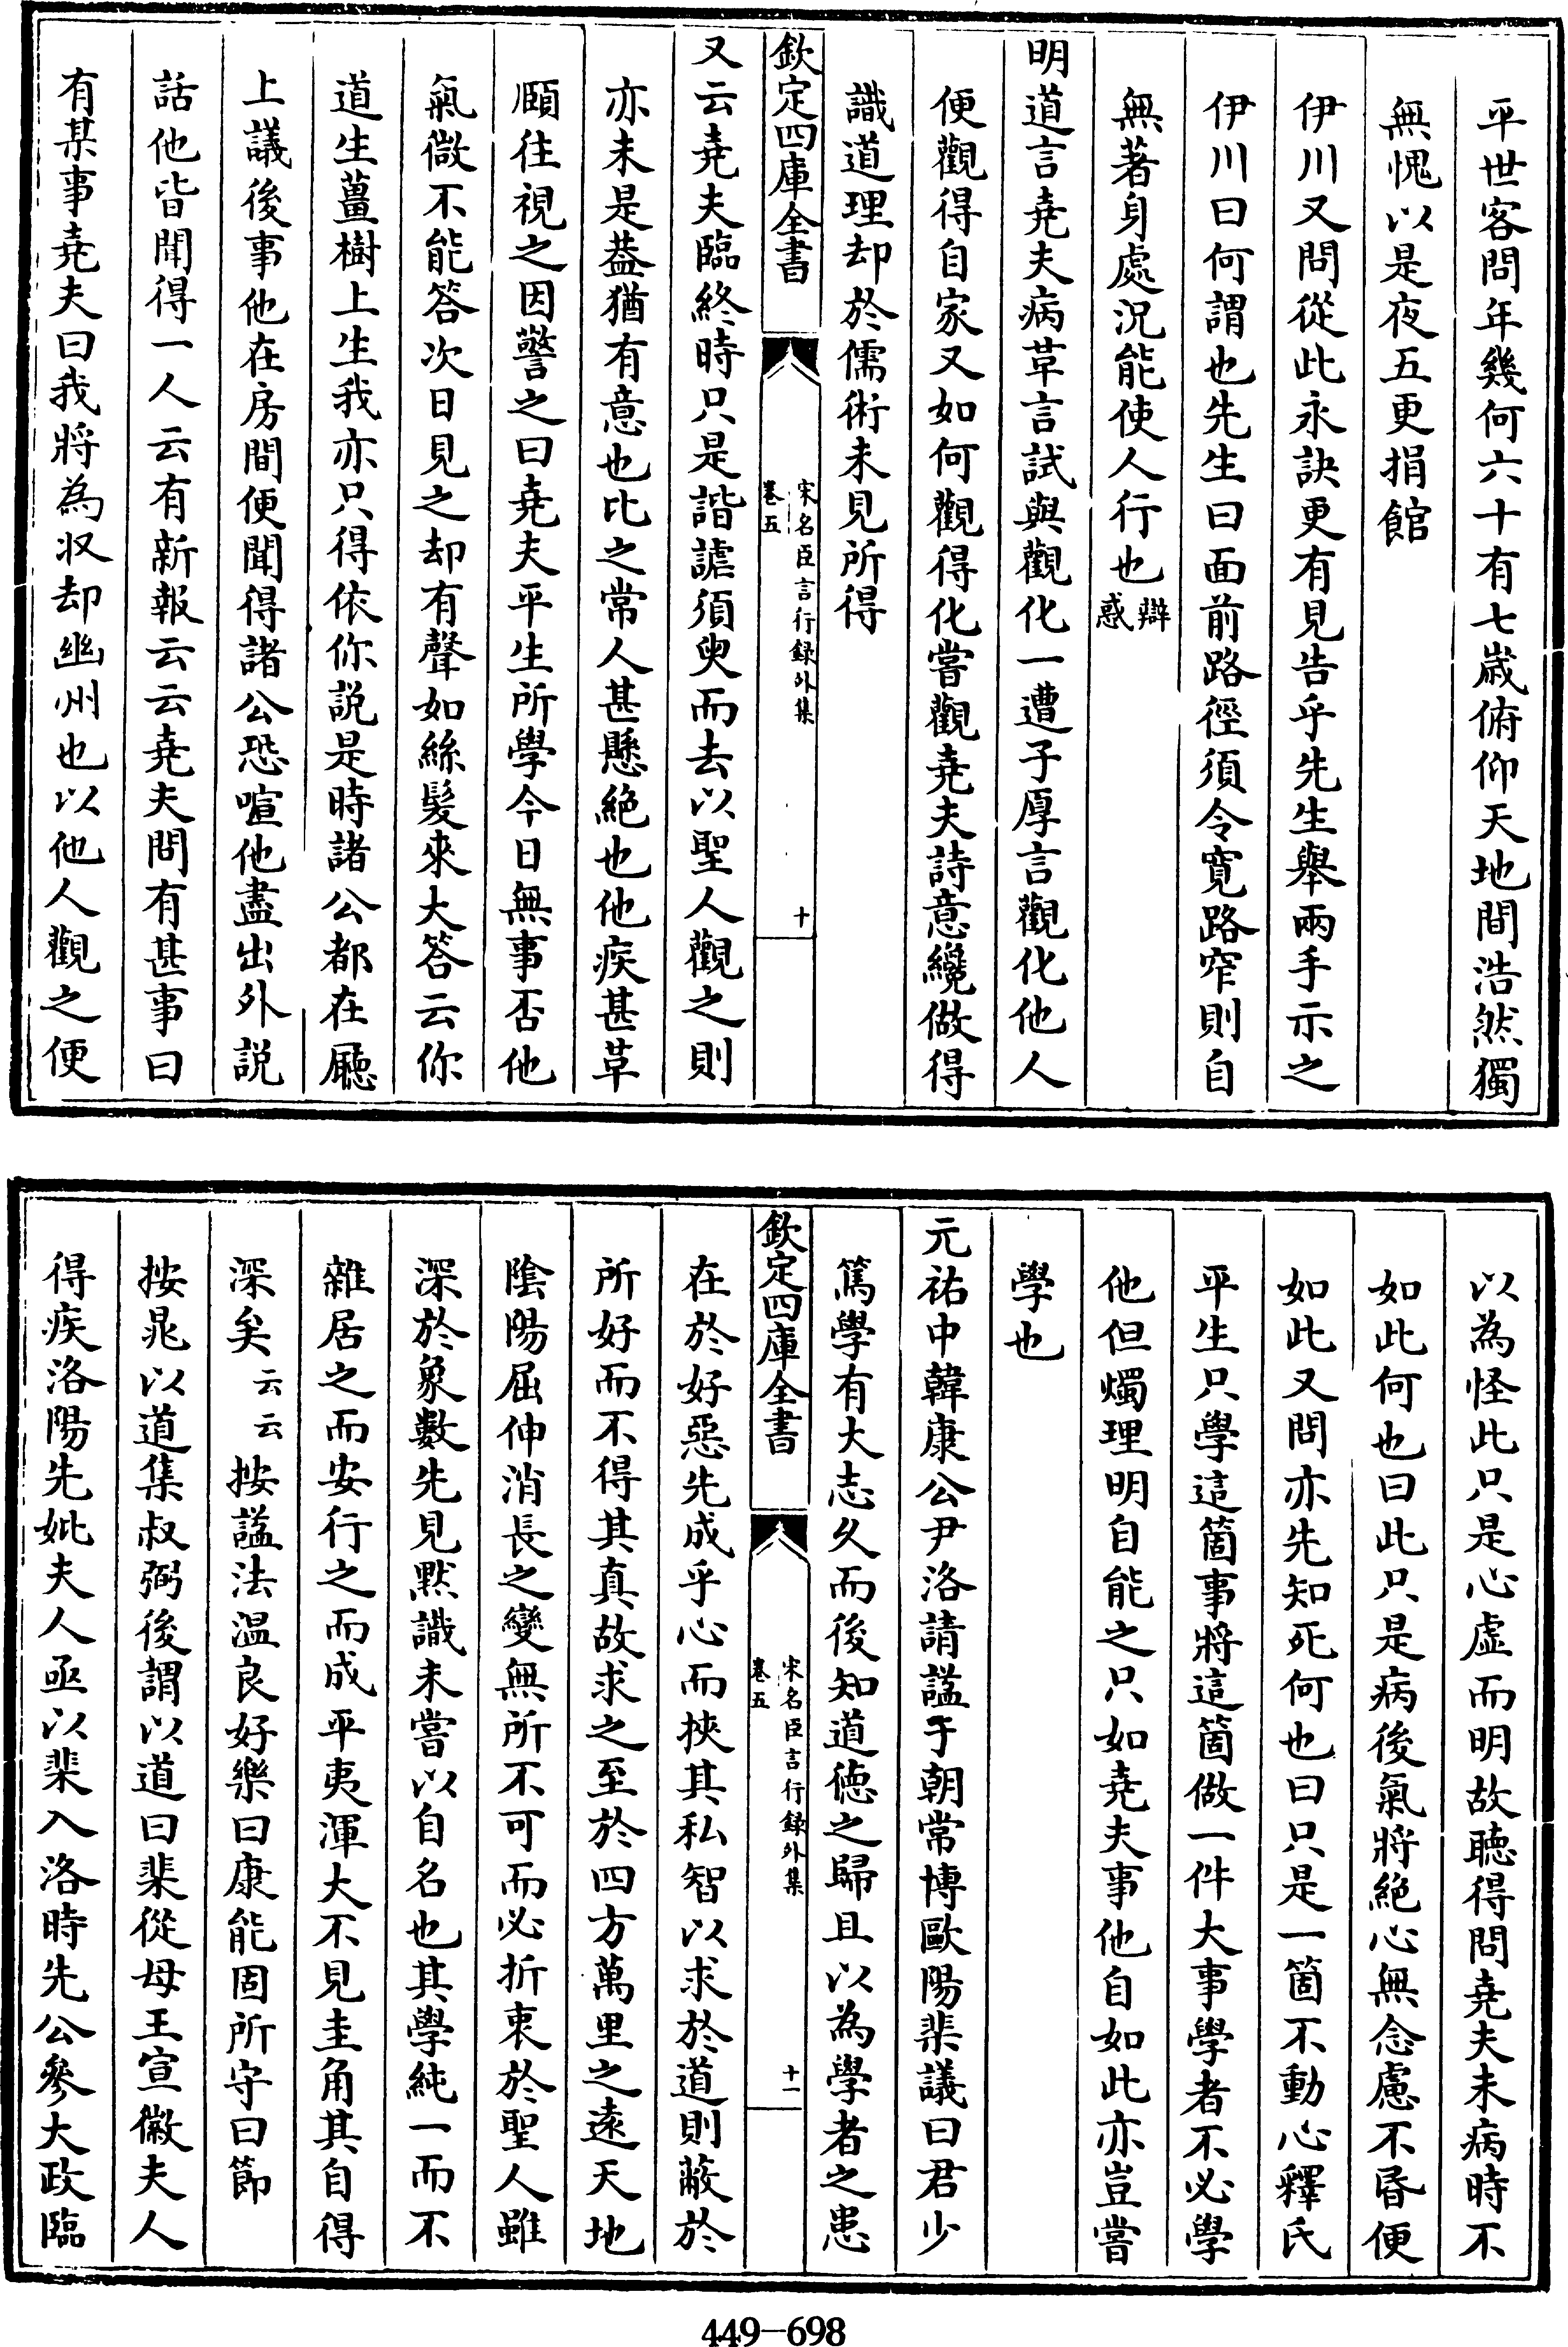 平世客問年幾何六十有七歳俯仰天地間浩然獨
無愧以是夜五更捐館
伊川又問從此永訣更有見告乎先生舉兩手示之
伊川曰何謂也先生曰面前路徑須令寛路窄則自
無著身處況能使人行也辯惑
明道言堯夫病革言試與觀化一遭子厚言觀化他人
便觀得自家又如何觀得化嘗觀堯夫詩意纔做得
識道理却於儒術未見所得
欽定四庫全書
宋名臣言行録外集
卷五
十
又云堯夫臨終時只是諧謔須臾而去以聖人觀之則
亦未是葢猶有意也比之常人甚懸絶也他疾甚革
頤往視之因警之曰堯夫平生所學今日無事否他
氣微不能答次日見之却有聲如絲髮來大答云你
道生薑樹上生我亦只得依你説是時諸公都在廳
上議後事他在房間便聞得諸公恐喧他盡出外説
話他皆聞得一人云有新報云云堯夫問有甚事曰
有某事堯夫曰我將為収却幽州也以他人觀之便
以為怪此只是心虛而明故聴得問堯夫未病時不
如此何也曰此只是病後氣將絶心無念慮不昏便
如此又問亦先知死何也曰只是一箇不動心釋氏
平生只學這箇事將這箇做一件大事學者不必學
他但燭理明自能之只如堯夫事他自如此亦豈嘗
學也
元祐中韓康公尹洛請諡于朝常博歐陽棐議曰君少
篤學有大志久而後知道徳之歸且以為學者之患
欽定四庫全書
宋名臣言行録外集
卷五
十一
在於好惡先成乎心而挾其私智以求於道則蔽於
所好而不得其真故求之至於四方萬里之逺天地
陰陽屈伸消長之變無所不可而必折衷於聖人雖
深於象數先見黙識未嘗以自名也其學純一而不
雜居之而安行之而成平夷渾大不見圭角其自得
深矣云云按諡法温良好樂曰康能固所守曰節
按晁以道集叔弼後謂以道曰棐從母王宣徽夫人
得疾洛陽先妣夫人亟以棐入洛時先公參大政臨
449—698